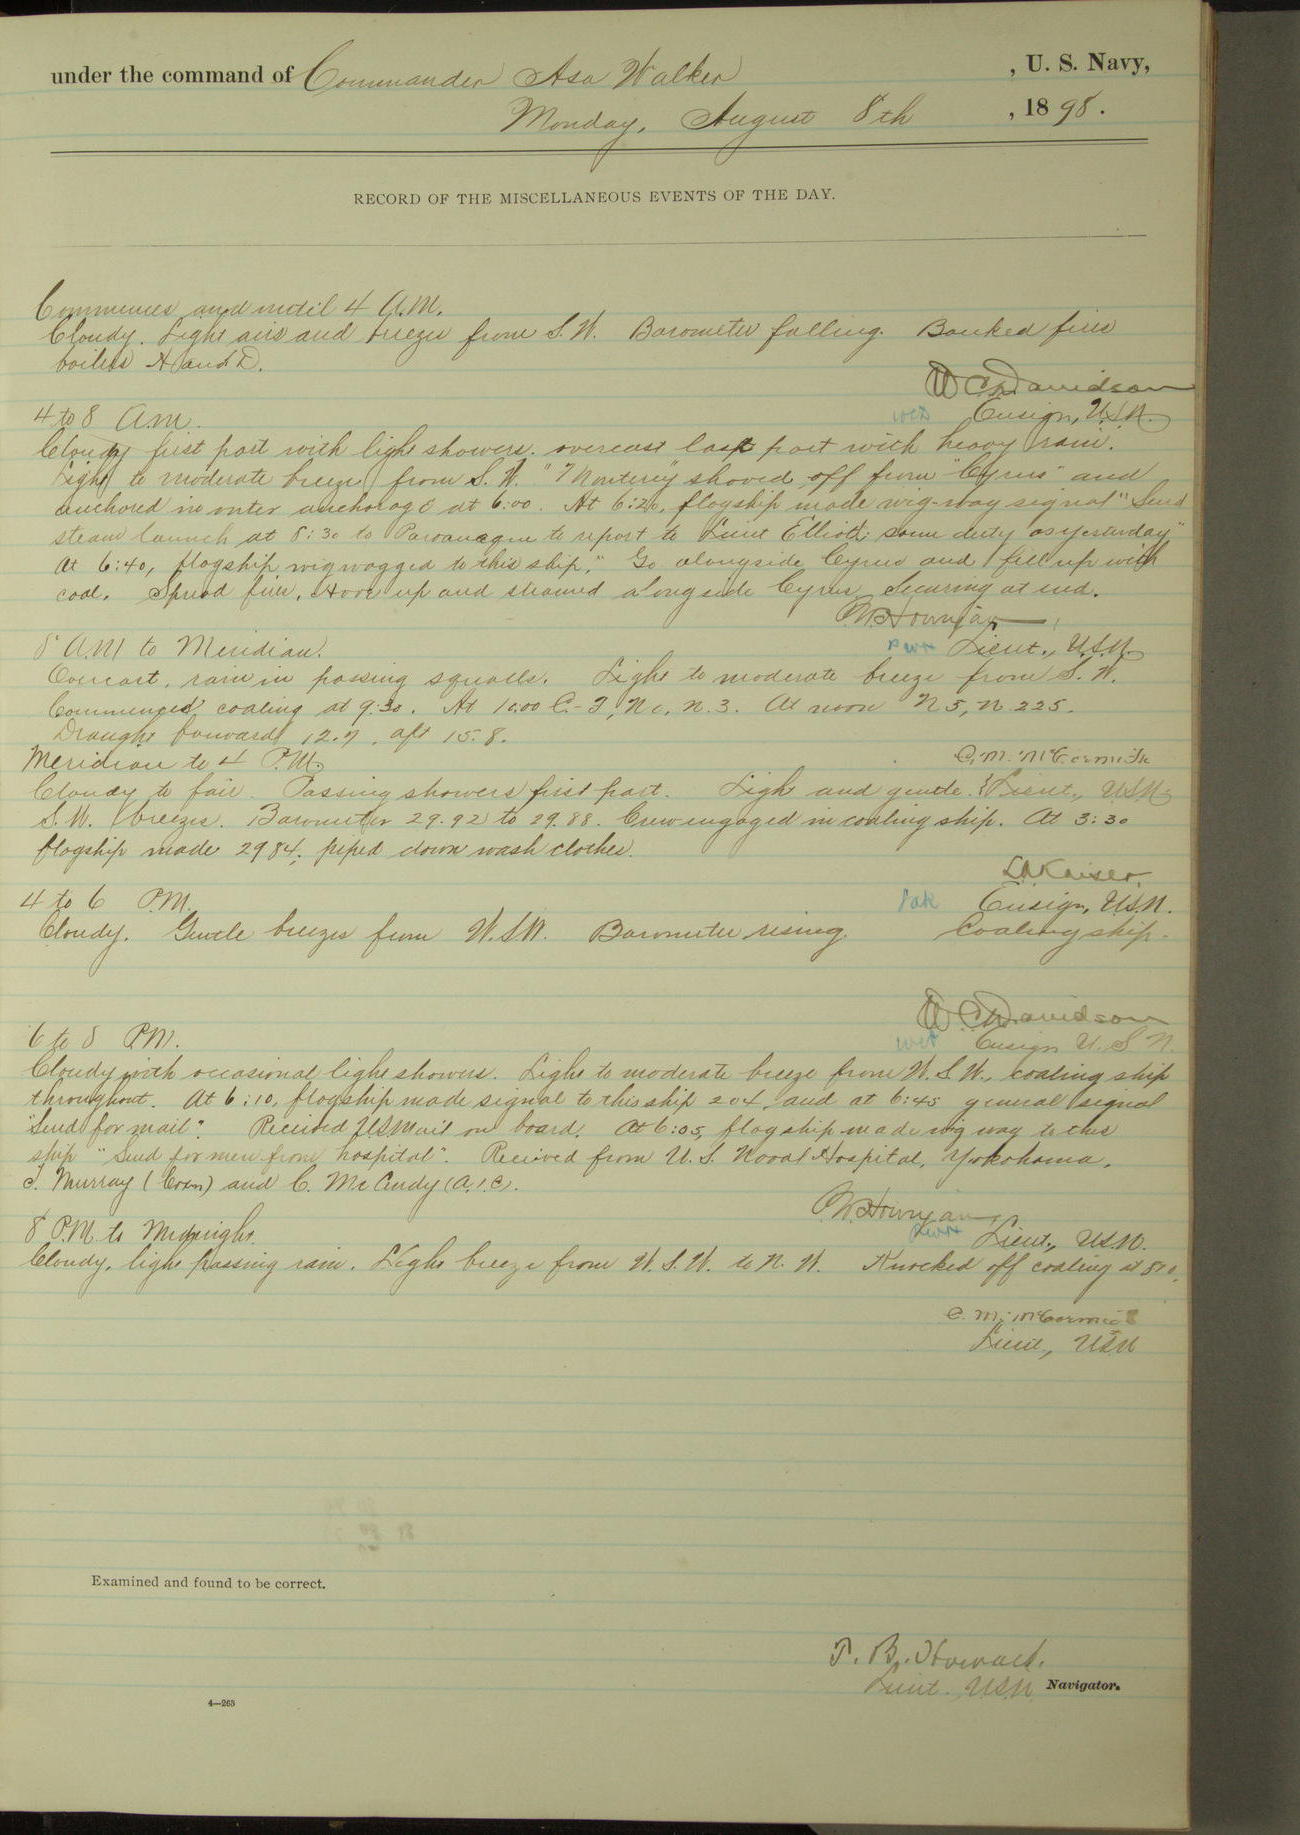 under the command of Commander Asa Walker, U. S. Navy,
Monday, August 8th, 1898.
RECORD OF THE MISCELLANEOUS EVENTS OF THE DAY.
Commences and until 4 A.M.
Cloudy. Light airs and breezes from S.W. Barometer falling. Banked fires
boilers A and D.
W C Davidson
4 to 8 A.M. Ensign, U.S.N.
Cloudy first part with light showers. overcast last part with heavy rain.
Light to moderate breeze from S.W. "Monterey" shoved off from "Cyrus" and
anchored in outer anchorage at 6:00. At 6:20, flagship made wig-wag signal "Send
steam launch at 8:30 to Paranaque to report to Lieut Elliott; same duty as yesterday"
At 6:40, flagship wigwagged to this ship, "Go alongside Cyrus and fill up with
coal. Spread fires, hove up and steamed alongside Cyrus, Securing at end.
8 A.M. to Meridian. Lieut., U.S.N.
Overcast, rain in passing squalls. Light to moderate breeze from S.W.
Commenced coaling at 9:30. At 10:00 C.-I, No. n. 3. At noon N5, n 225.
Draught forward 12.7, aft 15.8.
Meridian to 4 P.M. C. M. McCormick
Cloudy to fair. Passing showers first part. Light and gentle Lieut., U.S.N.
S.W. breezes. Barometer 29.92 to 29.88. Crew engaged in coaling ship. At 3:30
flagship made 2984; piped down wash clothes.
L A Kaiser
4 to 6 P.M. Ensign, U.S.N.
Cloudy. Gentle breezes from W.S.W. Barometer rising. Coaling ship.
W C Davidson
6 to 8 P.M. Ensign U.S.N.
Cloudy with occasional light showers. Light to moderate breeze from W.S.W., coaling ship
throughout. At 6:10, flagship made signal to this ship 204, and at 6:45 general signal
"Send for mail". Received USMail on board. At 6:05, flagship made wig wag to this
ship "Send for men from hospital". Received from U.S. Naval Hospital, Yokohama,
J. Murray (Coxn) and C. McCurdy (A.1.C).
8 P.M. to Midnight. Lieut., U.S.N.
Cloudy, light passing rain. Light breeze from W.S.W. to N.W. Knocked off coaling at 810.
C. M. McCormick
Lieut., USN
Examined and found to be correct.
T. B. Howard.
Lieut. U.S.N. Navigator.
4—263